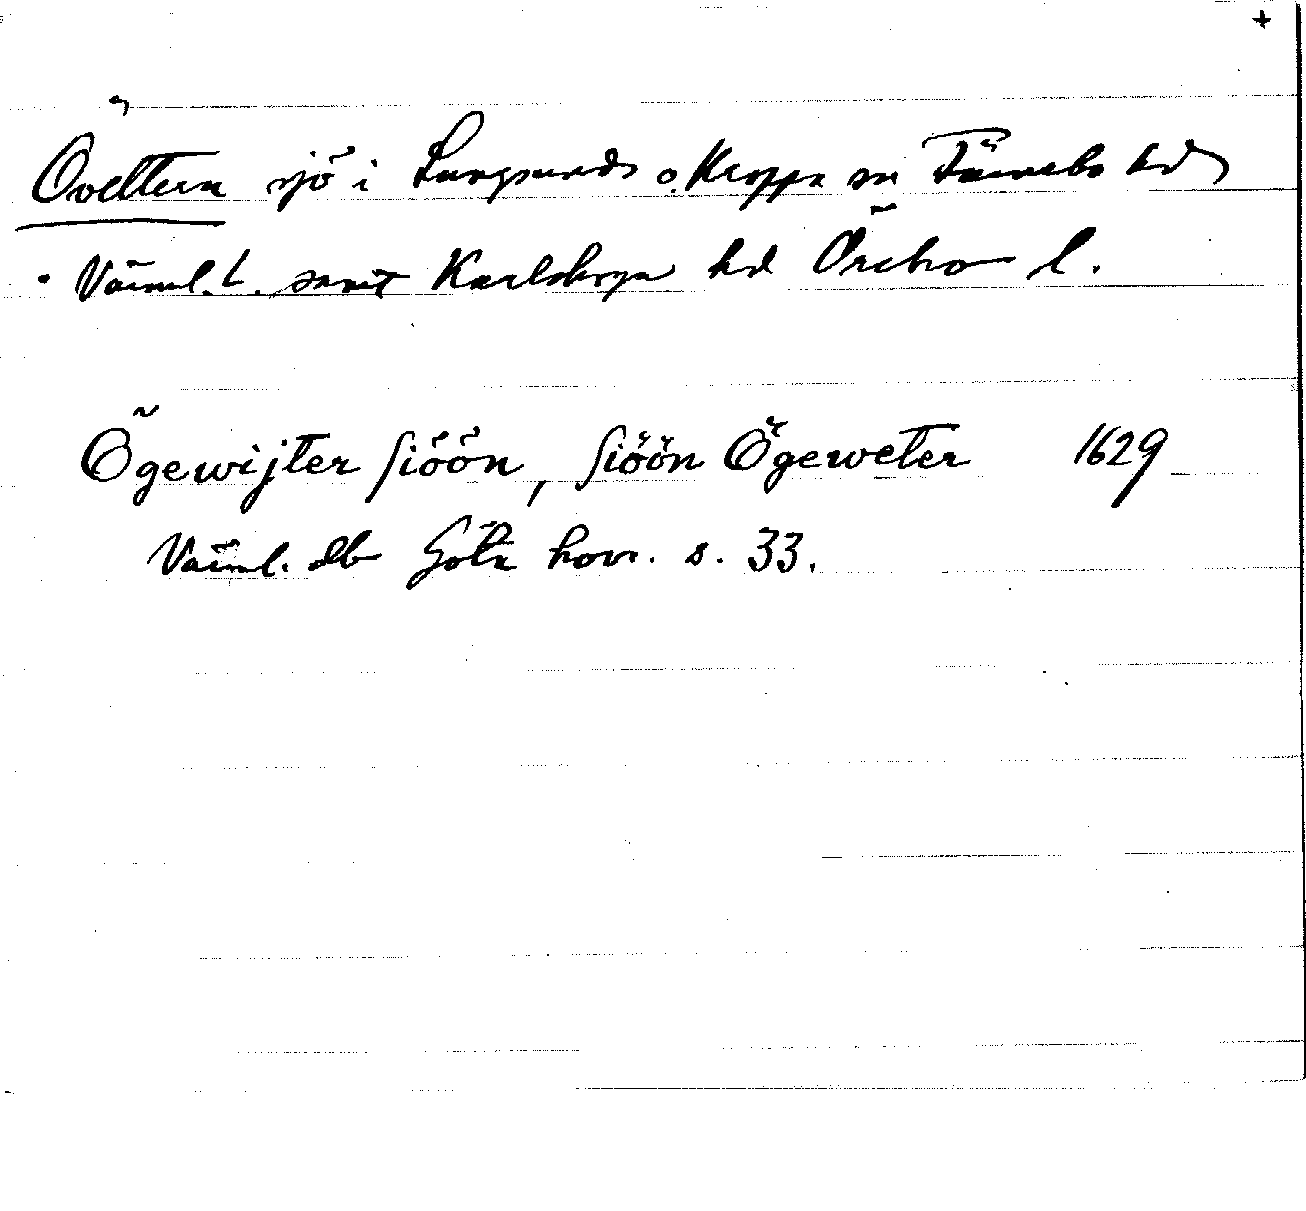 +
Övettern sjö i Lungsunds o. Kroppa sn Färnebo hd
Värml. l. samt Karlskoga hd Örebro l.
Ögewijter siöön, siöön Ögeweter 1629
Värml. db Göta hovr. s. 33.